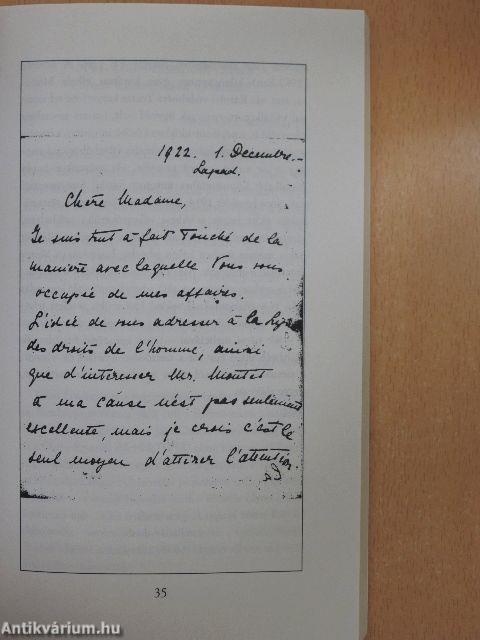 1922. 1. Decembre.
Lapad.
Chère Madame,
Je suis tout à fait touché de la
manière avec laquelle Vous vous
occupée de mes affaires.
L'idée de vous adresser à la Lige
des droits de l'homme, ainsi
que d'interesser Mr. Montet
à ma cause n'est pas seulement
excellente, mais je crois c'est le
seul moyen d'attirer l'attention
35
Antikvárium.hu